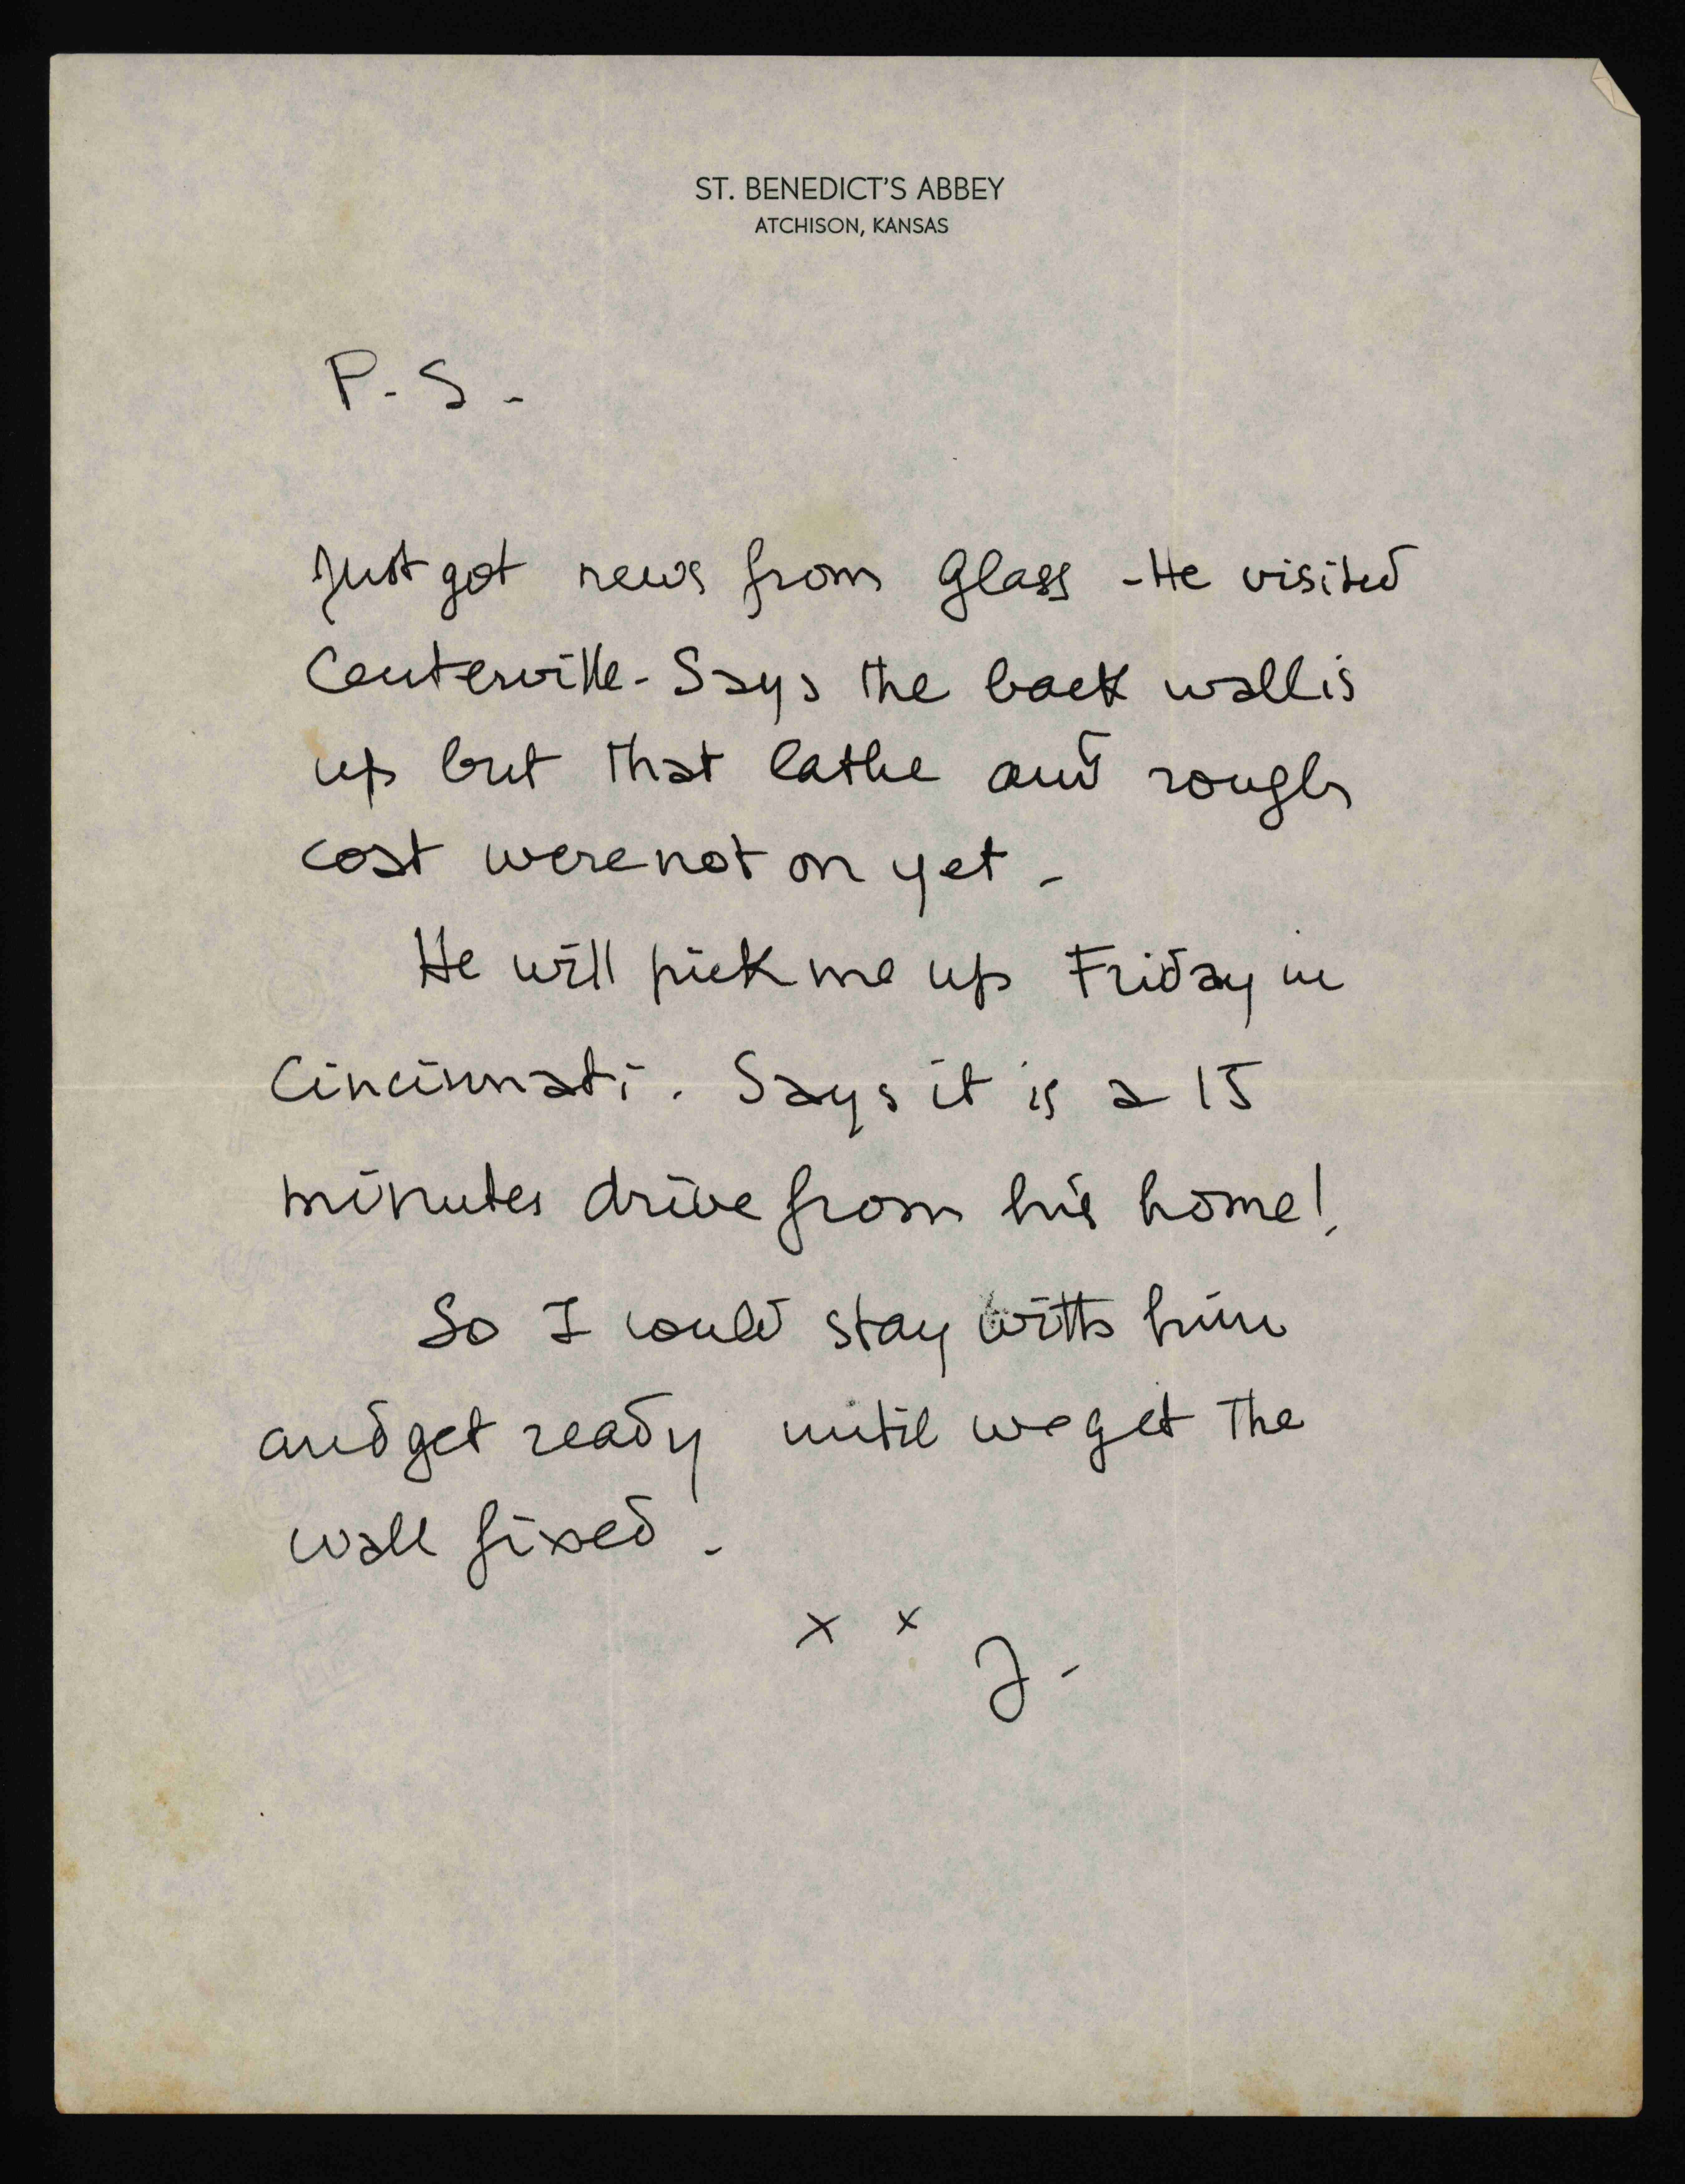 ST. BENEDICT'S ABBEY
ATCHISON, KANSAS
P. S -
Just got news from Glass - He visited
Centerville - Says the back wall is
up but that lathe and rough
cost were not on yet -
He will pick me up Friday in
Cincinnati. Says it is a 15
minutes drive from his home!
So I could stay with him
and get ready until we get the
wall fixed -
x x J -